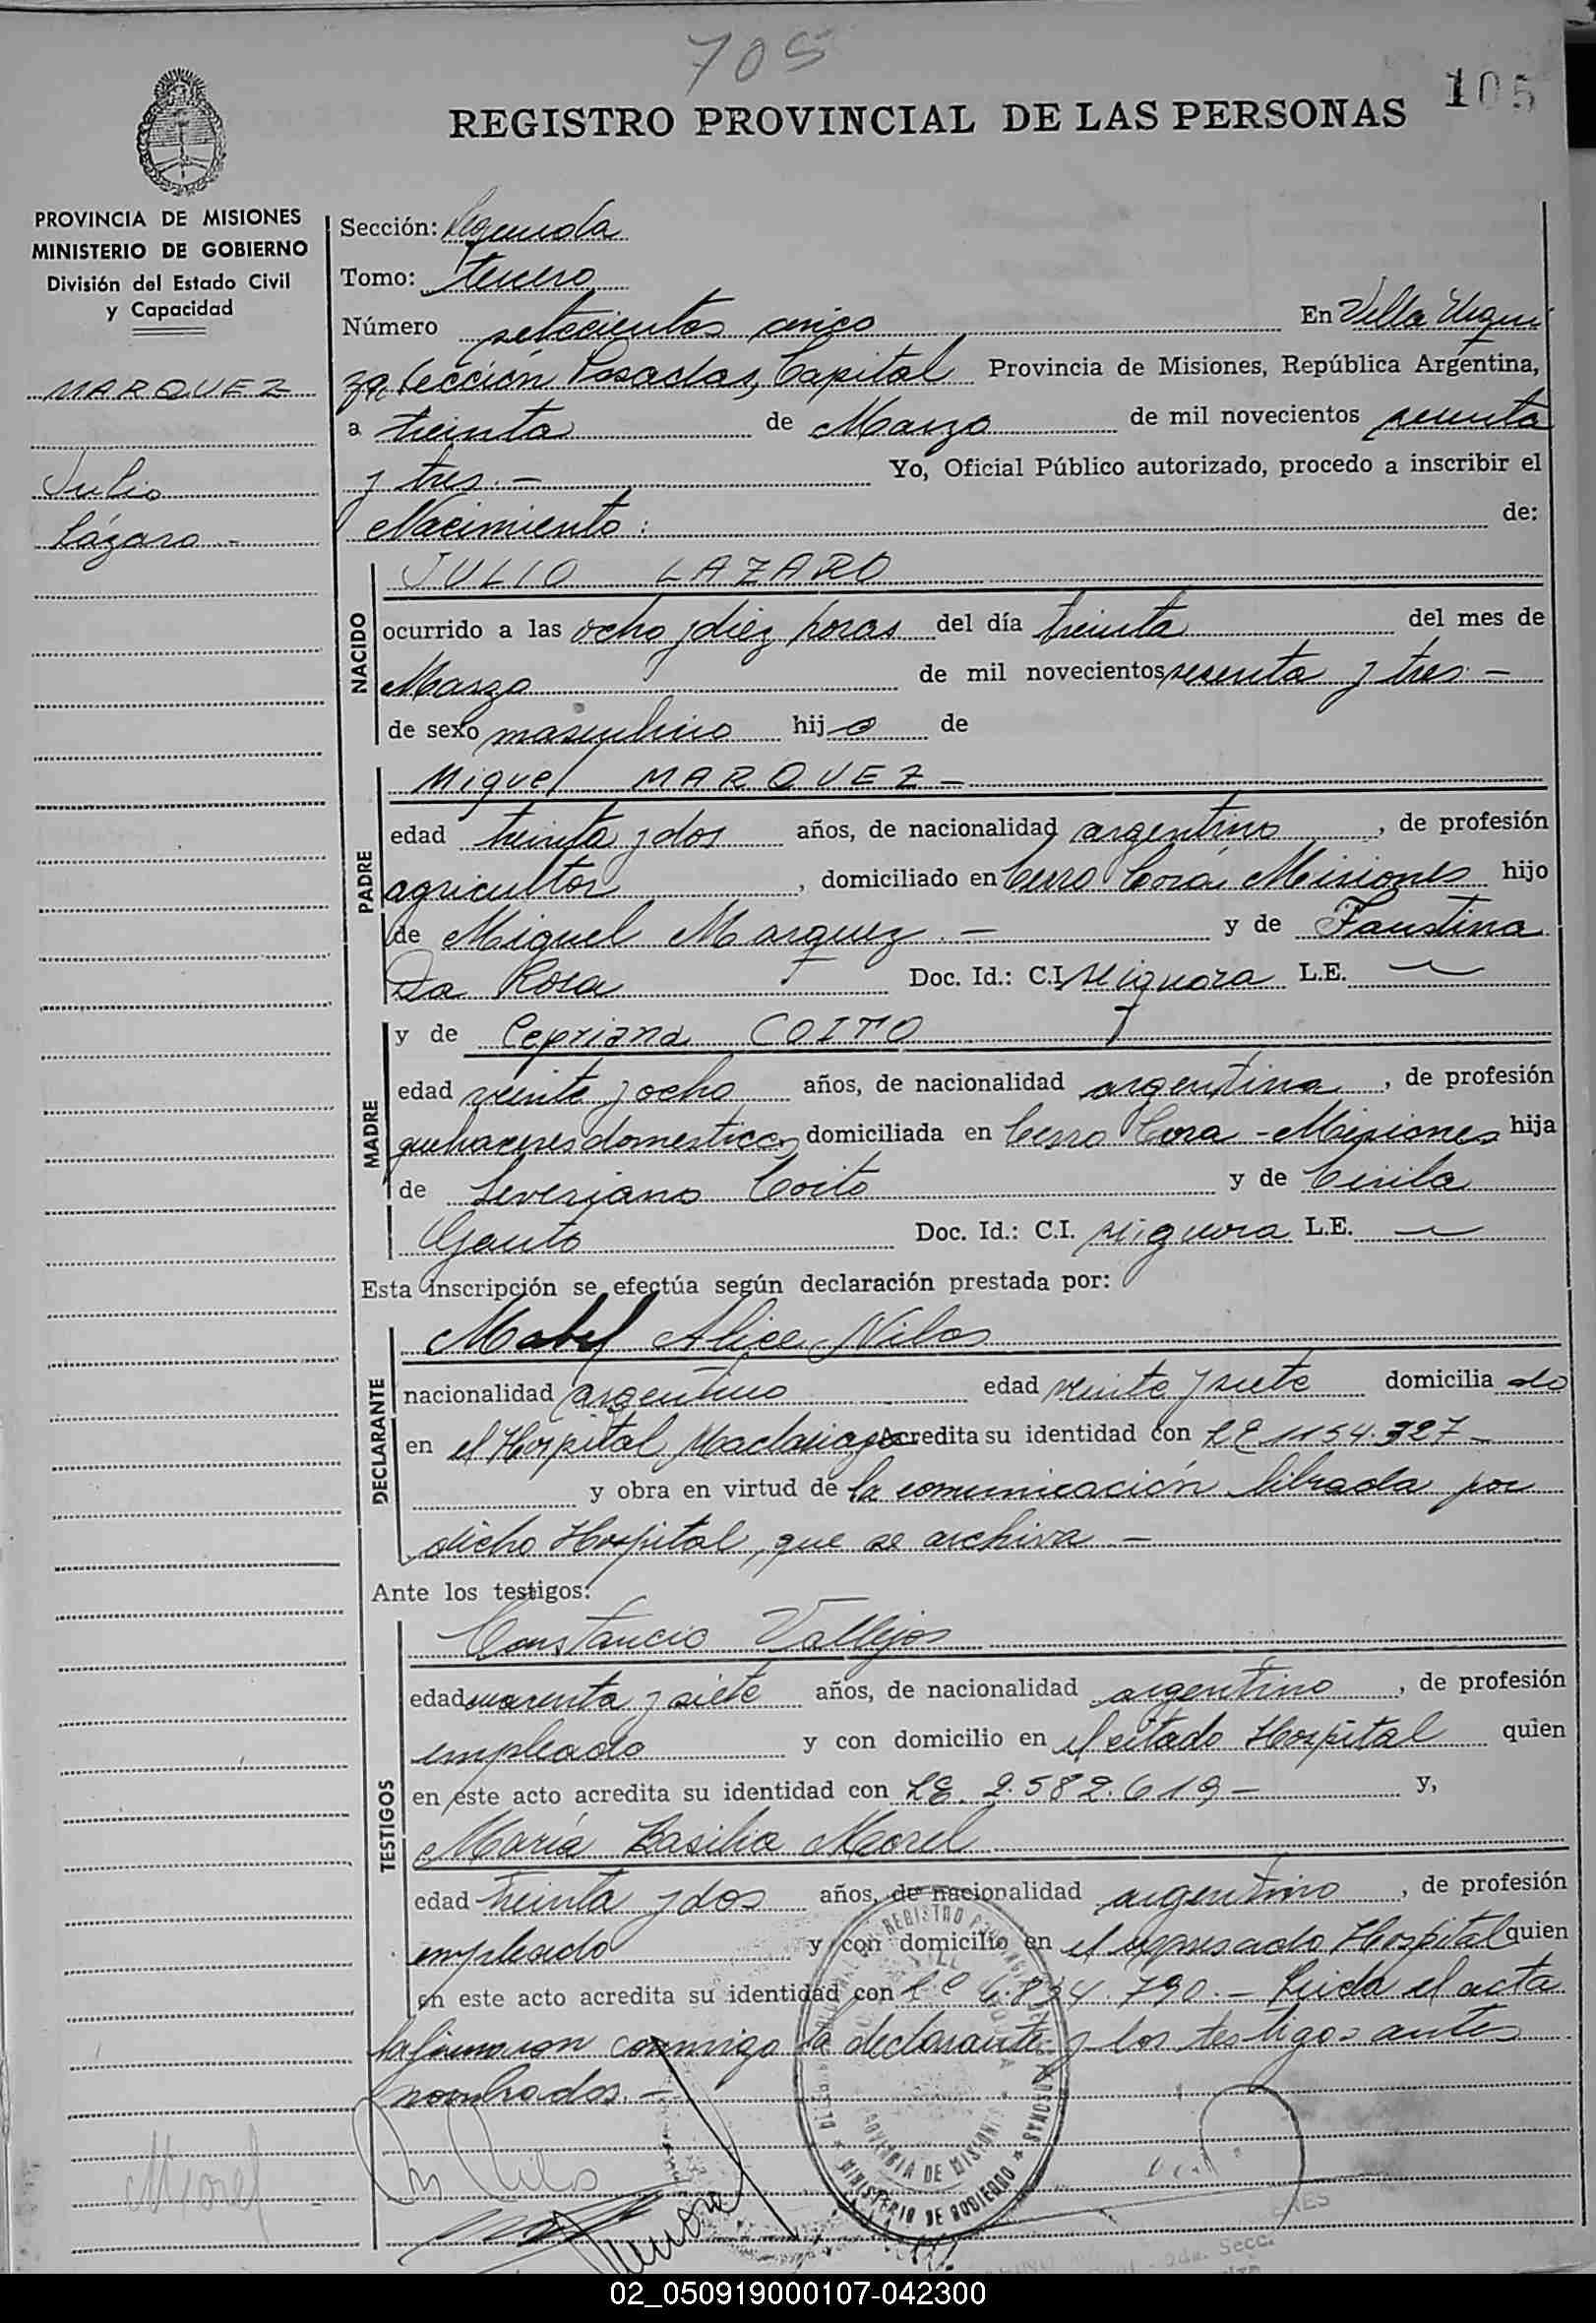 705
105
REGISTRO PROVINCIAL DE LAS PERSONAS
PROVINCIA DE MISIONES
MINISTERIO DE GOBIERNO
División del Estado Civil
y Capacidad
MARQUEZ
Julio
Lázaro.-
Sección: Segunda
Tomo: tercero
Número setecientos cinco En Villa Urqui
za Sección Posadas, Capital Provincia de Misiones, República Argentina,
a treinta de Marzo de mil novecientos sesenta
y tres.- Yo, Oficial Público autorizado, procedo a inscribir el
Nacimiento: de:
NACIDO
JULIO LAZARO
ocurrido a las ocho y diez horas del día treinta del mes de
Marzo de mil novecientos sesenta y tres.-
de sexo masculino hijo de
PADRE
Miguel MARQUEZ-
edad treinta y dos años, de nacionalidad argentino, de profesión
agricultor, domiciliado en Cerro Corá Misiones hijo
de Miguel Marquez.- y de Faustina
Da Rosa Doc. Id.: C.I. se ignora L.E.
MADRE
y de Cepriana COITO
edad veinte y ocho años, de nacionalidad argentina, de profesión
quehaceres domesticos, domiciliada en Cerro Cora - Misiones hija
de Severiano Coito y de Cirila
Gauto Doc. Id.: C.I. se ignora L.E.
Esta inscripción se efectúa según declaración prestada por:
DECLARANTE
Mabel Alice Nilos
nacionalidad argentino edad veinte y siete domiciliado
en el Hospital Madariaga Acredita su identidad con LE 1154.327-
y obra en virtud de la comunicación librada por
dicho Hospital, que se archiva.-
Ante los testigos:
TESTIGOS
Constancio Vallejos
edad cuarenta y siete años, de nacionalidad argentino, de profesión
empleado y con domicilio en el citado Hospital quien
en este acto acredita su identidad con LE. 2.582.619- y,
María Basilia Morel
edad treinta y dos años, de nacionalidad argentino, de profesión
empleado y con domicilio en el expresado Hospital quien
en este acto acredita su identidad con L.C 6.834.790.- Leida el acta
la firmaron conmigo la declarante y los testigos antes
nombrados.-
REGISTRO
MINISTERIO DE GOBIERNO
Morel
2da. Secc.
02_050919000107-042300